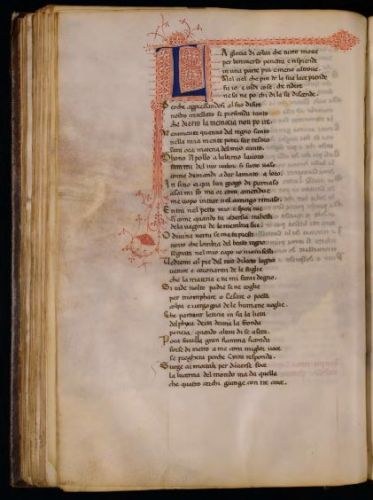 LA gloria di colui che tutto move
per luniverso penetra e risplende
in una parte piu e meno altrove
Nel ciel che piu de la sua luce prende
fu io e vidi cose che ridire
ne sa ne po chi di la su discende
Perche appressandosi al suo disire
nostro intelletto si profonda tanto
che dietro la memoria non po ire
Veramente quantio del regno santo
nella mia mente potei far tesoro
sara ora materia del mio canto
O buono Apollo a lultimo lavoro
fammi del tuo valor si fatto vaso
come dimandi a dar lamato aloro
In fino a qui lun giogo di parnaso
assai mi fu ma or con amendue
me uopo intrar nel aringo rimaso
Entra nel petto mio e spira tue
si come quando marsia traesti
dela vagina de le membra sue
O divina vertu se mi ti presti
tanto che lombra del beato regno
segnata nel mio capo io manifesti
Vedrami al pie del tuo diletto legno
venire e coronarmi de le foglie
che la materia e tu mi farai degno
Si rade volte padre se ne coglie
per triumphare o Cesare o poeta
colpa e vergogna de le humane voglie
Che parturir letitia in su la lieta
delphica deita devria la fronda
peneia quando alcun di se asseta
Poca favilla gran fiamma seconda
forse di retro a me con miglior voce
si preghera perche Cirra risponda
Surge ai mortali per diverse foci
la lucerna del mondo ma da quella
che quatro cerchi giunge con tre croci.